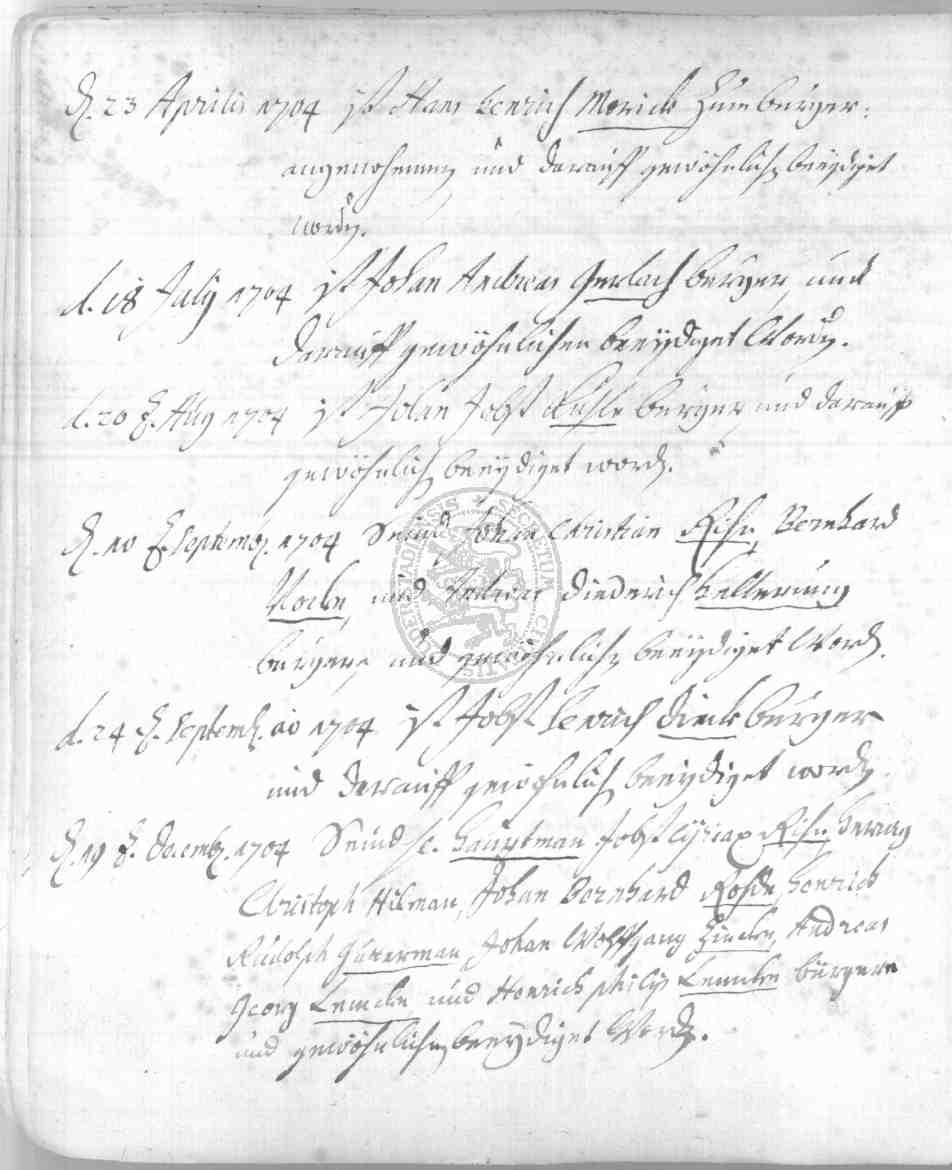 d. 23 Aprilis 1704 ist Hans Henrich Morick zum bürger
angenohmen und darauff gewöhnlich beeydiget
word.
d. 18 July 1704 ist Johan Andreas Gerlach bürger und
darauff gewöhnlichen beeydiget Word.
d. 20 Aug 1704 ist Johan Jobst bürger und darauff
gewöhnlich beeydiget word.
d. 10 Septemb. 1704 Seind Johan Christian Bernhard
und Andreas Diederich Kellerung
bürgere und gewöhnlich beeydiget Word.
d. 24 Septemb. ao 1704 ist Jobst Henrich Dieck bürger
und darauff gewöhnlich beeydiget word.
d. 19 Decemb. 1704 Seind H. Haubtman Jobst
Christoph Hilman, Johan Bernhard Henrich
Rudolph Johan Wolffgang Zincken, Andreas
Georg Lemcke und Henrich philip Lemcke bürgere
und gewöhnlich beeydiget Word.